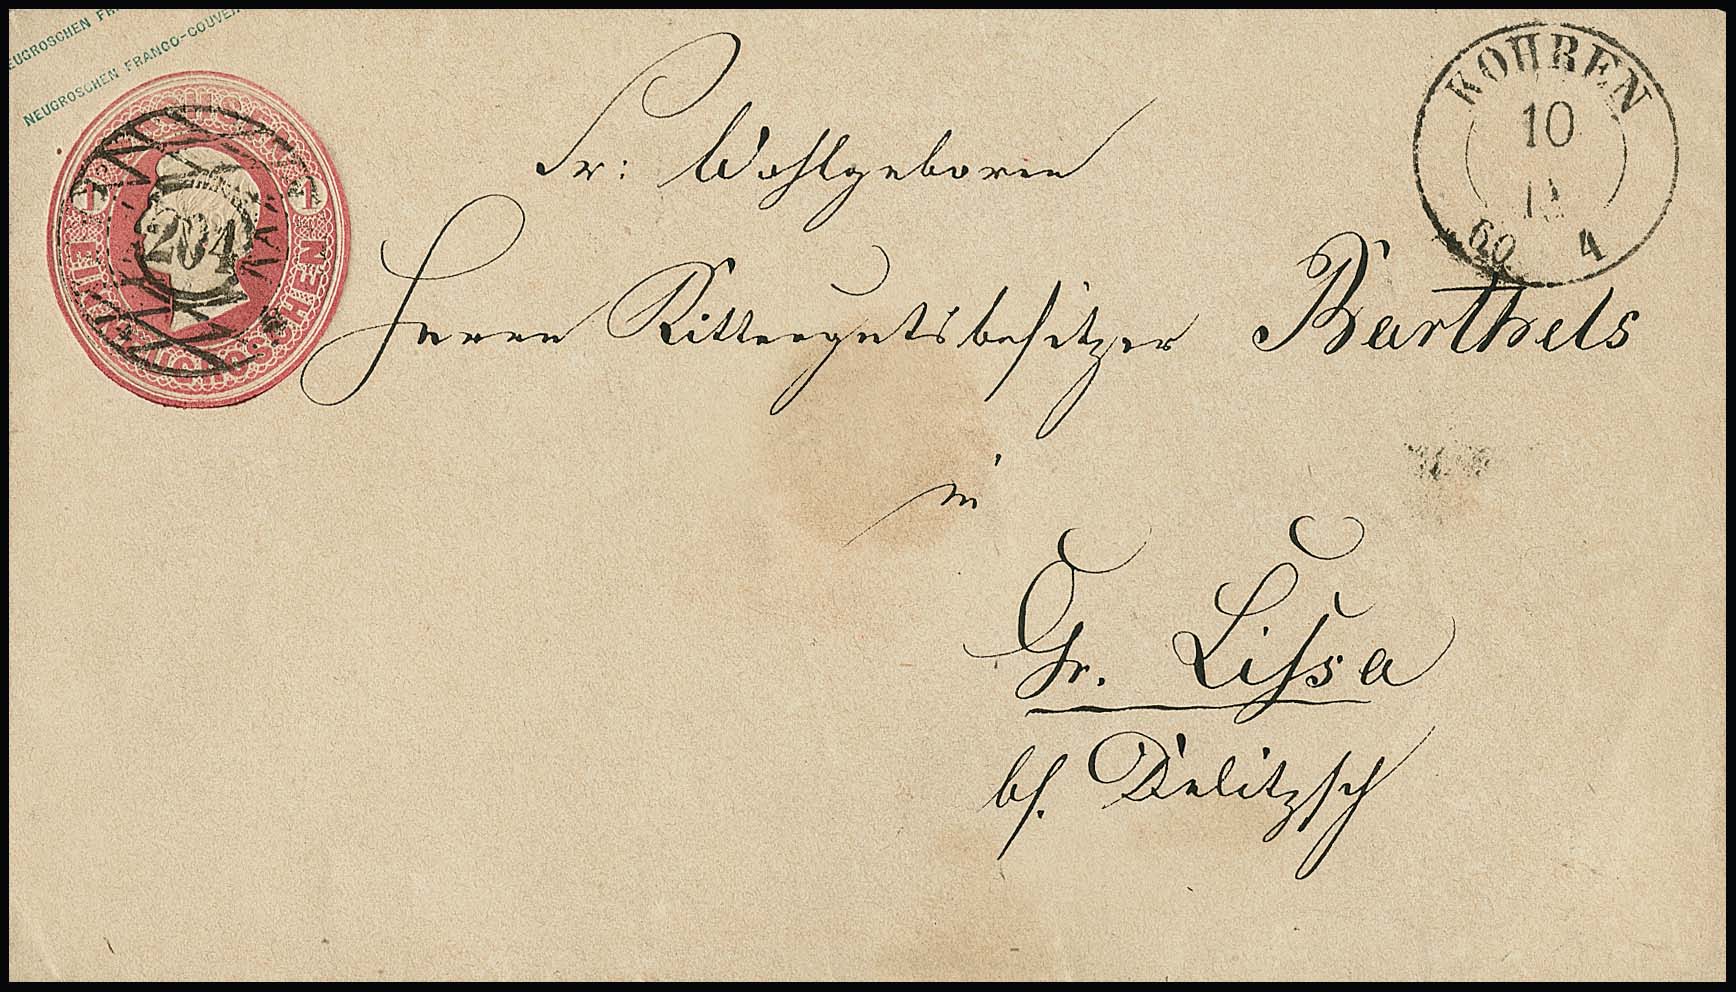 EUGROSCHEN FR
NEUGROSCHEN FRANCO-COUVER
1 1
EIN NEUGROSCHEN
204
KOHREN
10
60 4
Sr: Wohlgeboren
Herrn Rittergutsbesitzer Barthels
in
Gr. Lissa
bf. Delitzsch